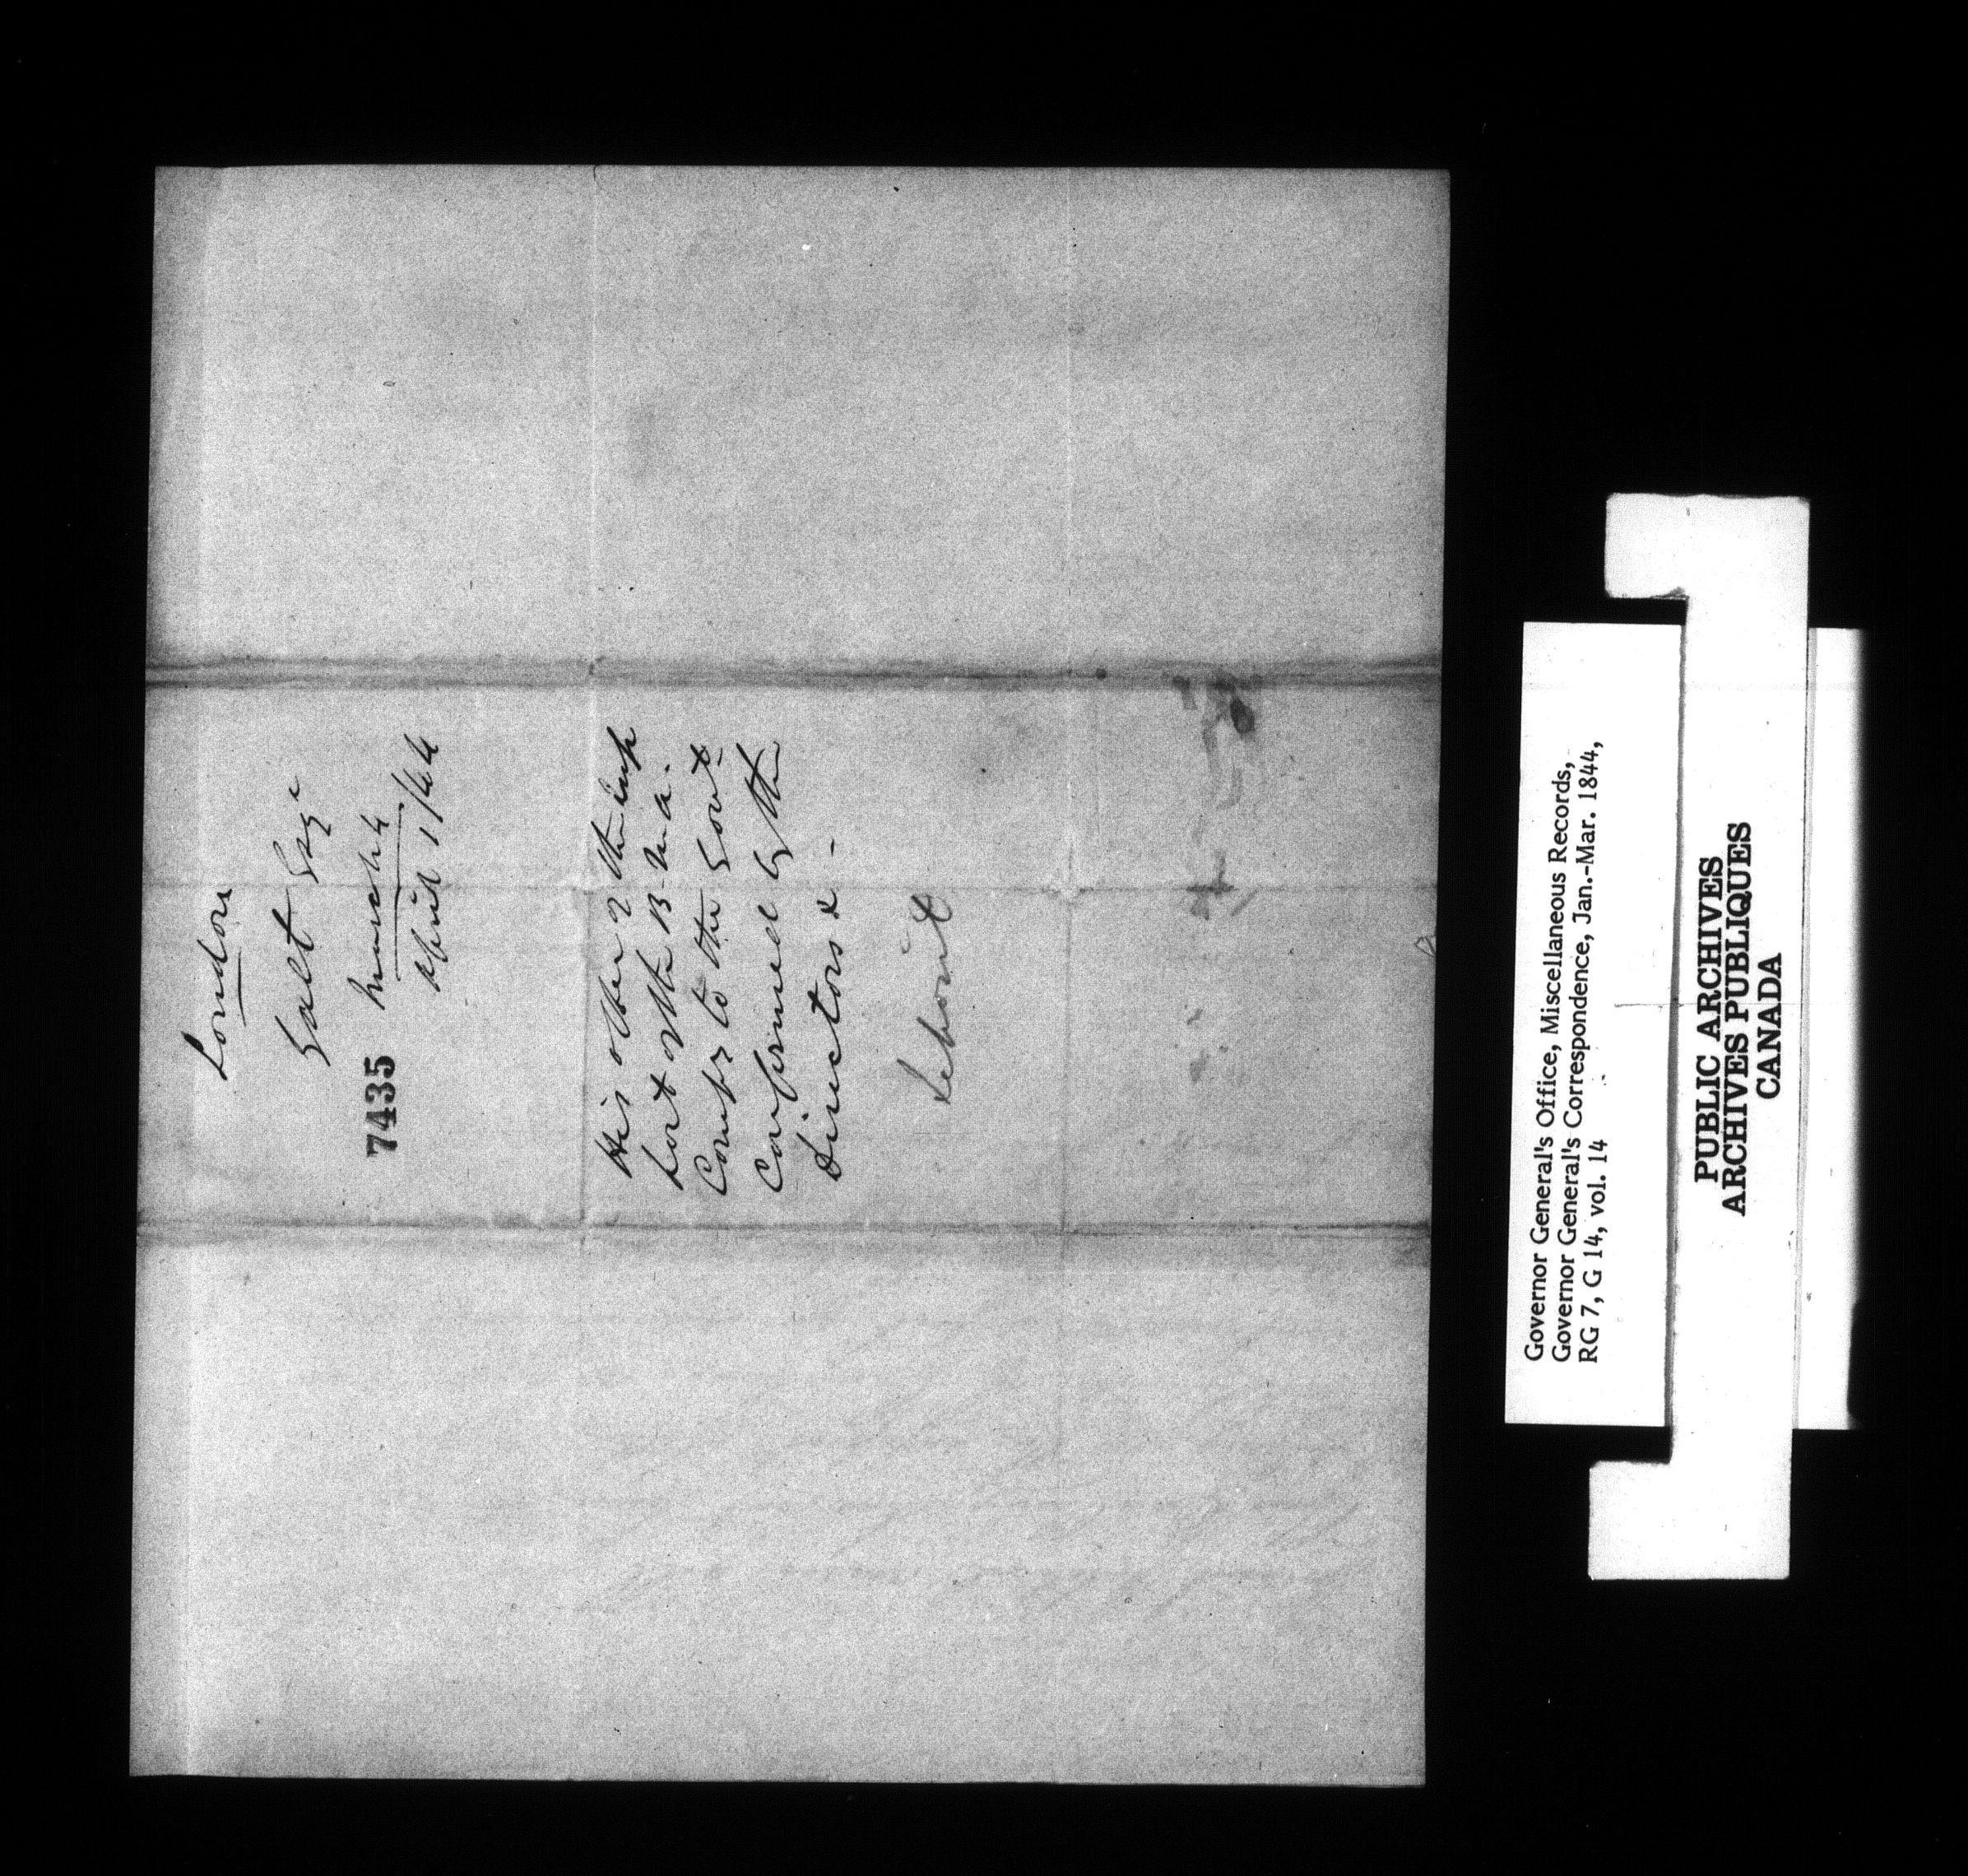 London
Galt Esqr
March 4
April 1/44
7435
His offer of the
Part of the B. A.
Compy to the Govt
Confirmed by the
Directors &
Governor General's Office, Miscellaneous Records,
Governor General's Correspondence, Jan.-Mar. 1844,
RG 7, G 14, vol. 14
PUBLIC ARCHIVES
ARCHIVES PUBLIQUES
CANADA